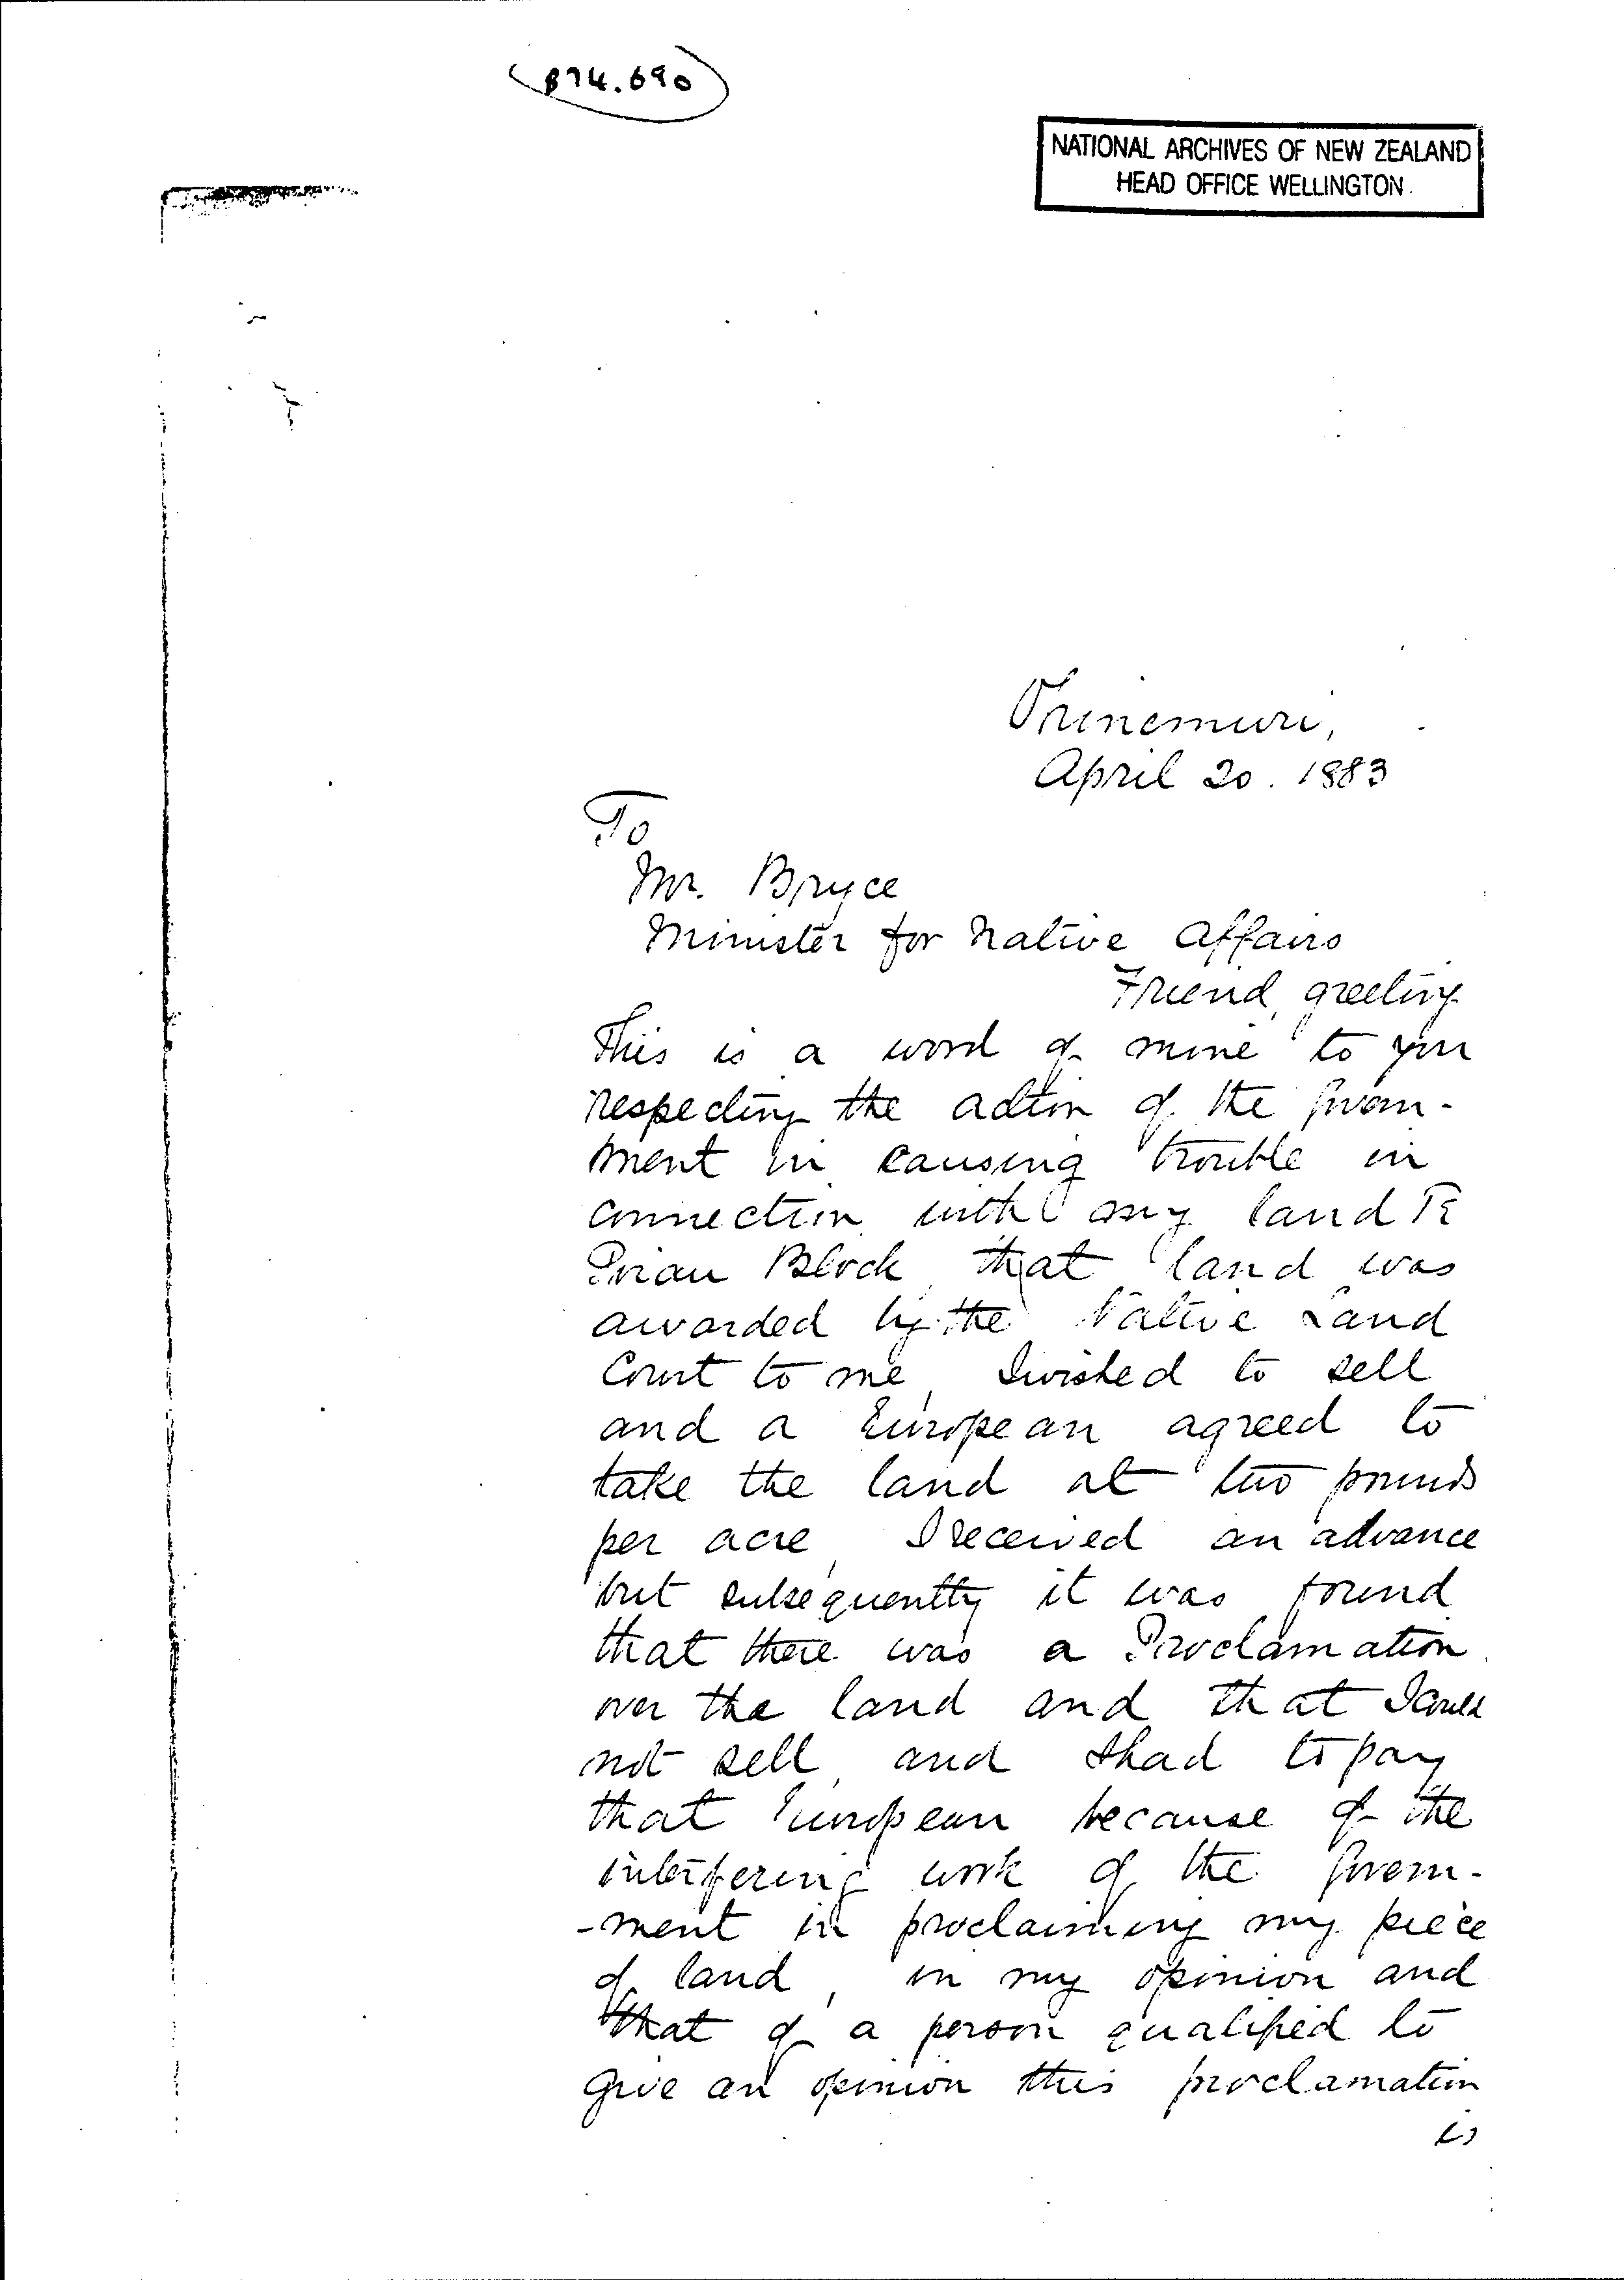 874.690
NATIONAL ARCHIVES OF NEW ZEALAND
HEAD OFFICE WELLINGTON.
Ohinemuri,
April 20. 1883
To
Mr. Bryce
Minister for Native Affairs
Friend, greeting
This is a word of mine to you
respecting the action of the Govern-
ment in causing trouble in
connection with my land Te
Block that land was
awarded by the Native Land
Court to me, I wished to sell
and a European agreed to
take the land at two pounds
per acre, I received an advance
but subsequently it was found
that there was a Proclamation
over the land and that I could
not sell, and I had to pay
that European because of the
interfering work of the Govern-
-ment in proclaiming my piece
of land, in my opinion and
that of a person qualified to
give an opinion this proclamation
is